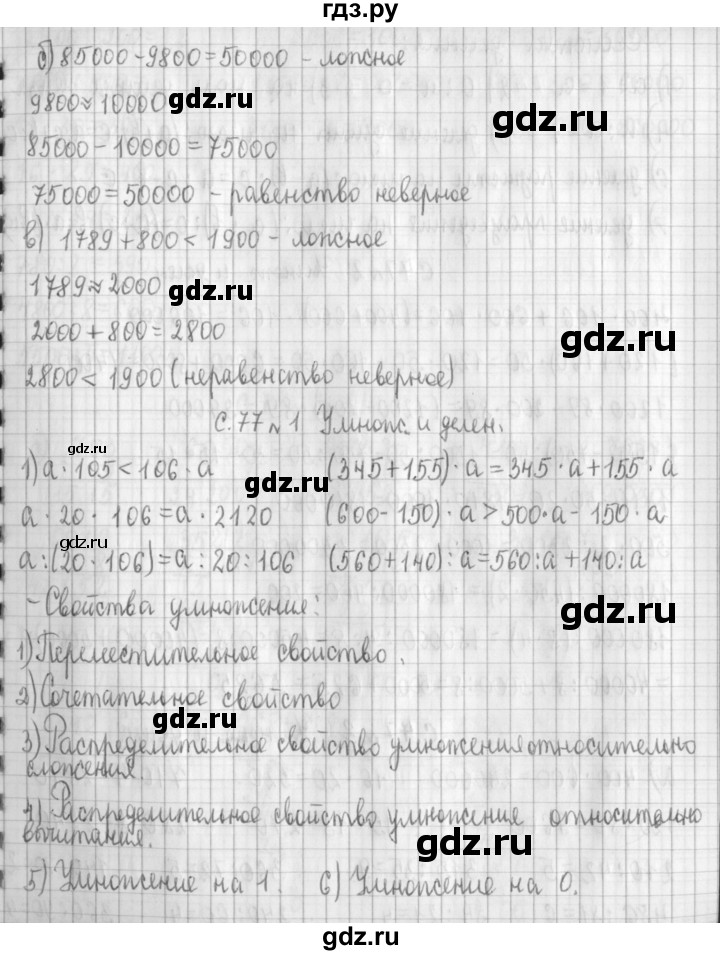 гдз.ру
б) 85000 - 9800 = 50000 - ложное
9800 ≈ 10000 gdz.ru
gdz.ru
85000 - 10000 = 75000
75000 = 50000 - равенство неверное
в) 1789 + 800 < 1900 - ложное
1789 ≈ 2000 gdz.ru
2000 + 800 = 2800
gdz.ru
2800 < 1900 (неравенство неверное)
С. 77 № 1 Умнож. и делен.
gdz.ru
1) а · 105 < 106 · а (345 + 155) · а = 345 · а + 155 · а
gdz.ru
а · 20 · 106 = а · 2120 (600 - 150) · а > 500 · а - 150 · а
gdz.ru
а : (20 · 106) = а : 20 : 106 (560 + 140) : а = 560 : а + 140 : а
- Свойства умножения:
gdz.ru
1) Переместительное свойство.
2) Сочетательное свойство
gdz.ru
3) Распределительное свойство умножения относительно
сложения.
4) Распределительное свойство умножения относительно
вычитания.
gdz.ru
5) Умножение на 1. 6) Умножение на 0.
gdz.ru